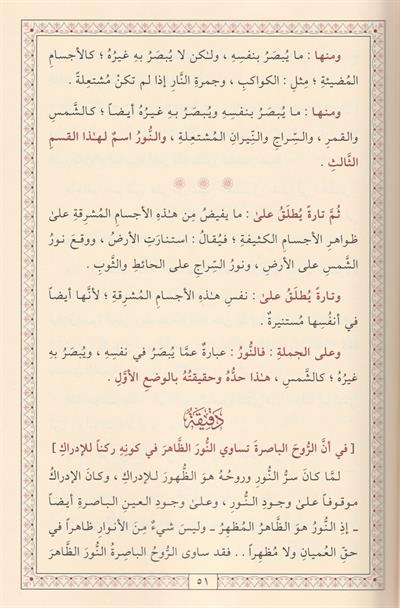 ومنها : ما يُبصَرُ بنفسِهِ ، ولـٰكن لا يُبصَرُ بهِ غيرُهُ ؛ كالأجسامِ
المُضيئةِ ؛ مِثلِ : الكواكبِ ، وجمرةِ النَّارِ إذا لم تكنْ مُشتعِلةً .
ومنها : ما يُبصَرُ بنفسِهِ ويُبصَرُ بهِ غيرُهُ أيضاً ؛ كالشَّمسِ
والقمرِ ، والسِّراجِ والنِّيرانِ المُشتعِلةِ ، والنُّورُ اسمٌ لهـٰذا القسمِ
الثَّالثِ .
* * *
ثُمَّ تارةً يُطلَقُ علىٰ : ما يفيضُ مِن هـٰذهِ الأجسامِ المُشرِقةِ علىٰ
ظواهرِ الأجسامِ الكثيفةِ ؛ فيُقالُ : استنارَتِ الأرضُ ، ووقعَ نورُ
الشَّمسِ على الأرضِ ، ونورُ السِّراجِ على الحائطِ والثَّوبِ .
وتارةً يُطلَقُ علىٰ : نفسِ هـٰذهِ الأجسامِ المُشرِقةِ ؛ لأنَّها أيضاً
في أنفُسِها مُستنيرةٌ .
وعلى الجملةِ : فالنُّورُ : عبارةٌ عمَّا يُبصَرُ في نفسِهِ ، ويُبصَرُ بهِ
غيرُهُ ؛ كالشَّمسِ ، هـٰذا حدُّهُ وحقيقتُهُ بالوضعِ الأوَّلِ .
دَقِيقَةٌ
[ في أنَّ الرُّوحَ الباصرةَ تساوي النُّورَ الظَّاهرَ في كونِهِ ركناً للإدراكِ ]
لمَّا كانَ سرُّ النُّورِ وروحُهُ هوَ الظُّهورَ للإدراكِ ، وكانَ الإدراكُ
موقوفاً علىٰ وجودِ النُّورِ ، وعلىٰ وجودِ العينِ الباصرةِ أيضاً
ـ إذِ النُّورُ هوَ الظَّاهرُ المُظهِرُ ـ وليسَ شيءٌ مِنَ الأنوارِ ظاهراً في
حقِّ العُميانِ ولا مُظهِراً .. فقد ساوى الرُّوحُ الباصرةُ النُّورَ الظَّاهرَ
٥١